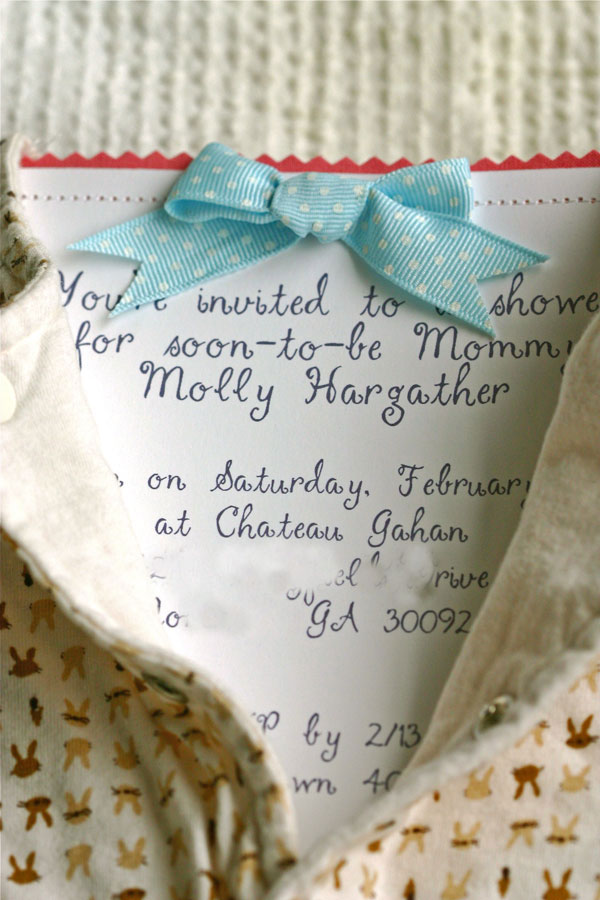 You're invited to a showe
for soon-to-be Mommy
Molly Hargather
on Saturday, February
at Chateau Gahan
rive
GA 30092
by 2/13